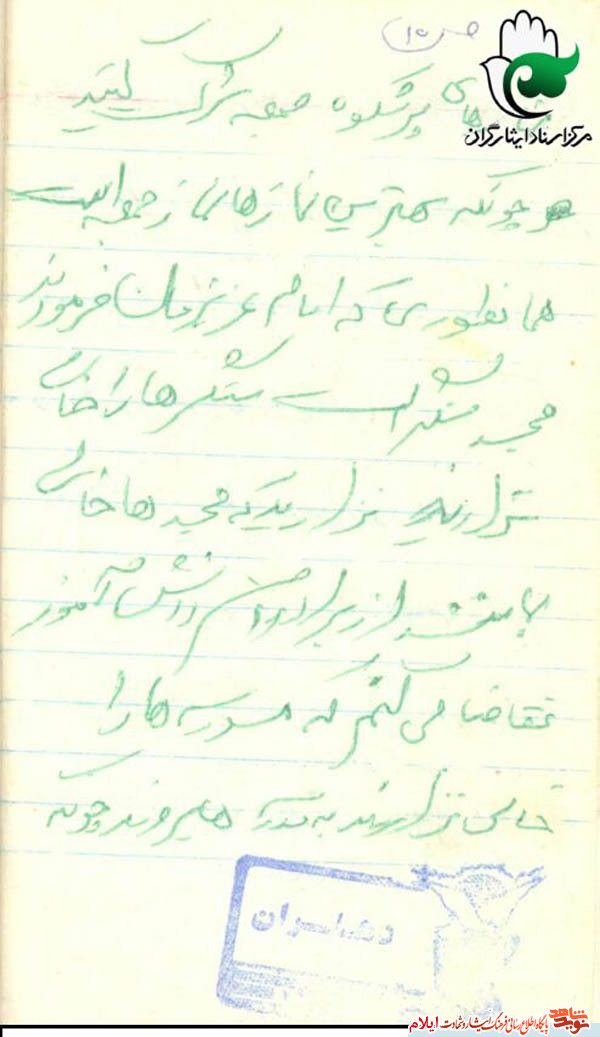 ص ۱۵
مرکز اسناد ایثارگران
های پرشکوه جمعه شرکت کنید
چونکه بهترین نمازها نماز جمعه است
همانطوری که امام عزیزمان فرمودند
مسجد سنگر است سنگرها را خالی
نزارید نزارید که مسجد ها خالی
باشند از برادران دانش آموز
تقاضا می کنم که مدرسه ها را
خالی نزارند به مدرسه ها بروند چونکه
دهلران
نوید شاهد پایگاه اطلاع رسانی فرهنگ ایثار و شهادت ایلام